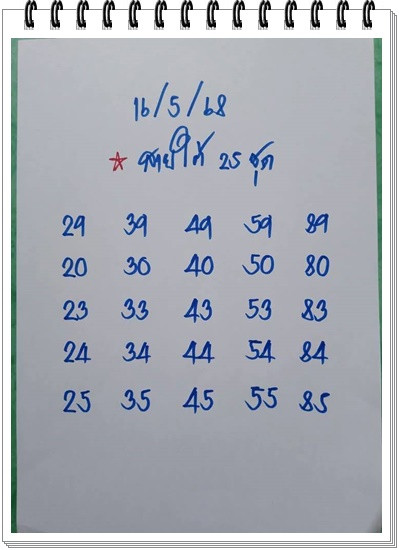 16/5/68
สายใต้ 25 ชุด
29 39 49 59 89
20 30 40 50 80
23 33 43 53 83
24 34 44 54 84
25 35 45 55 85